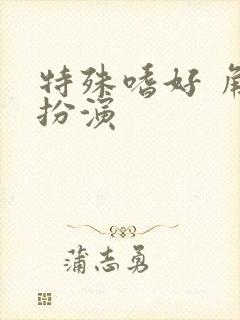 特殊嗜好 角
扮演
蒲志勇